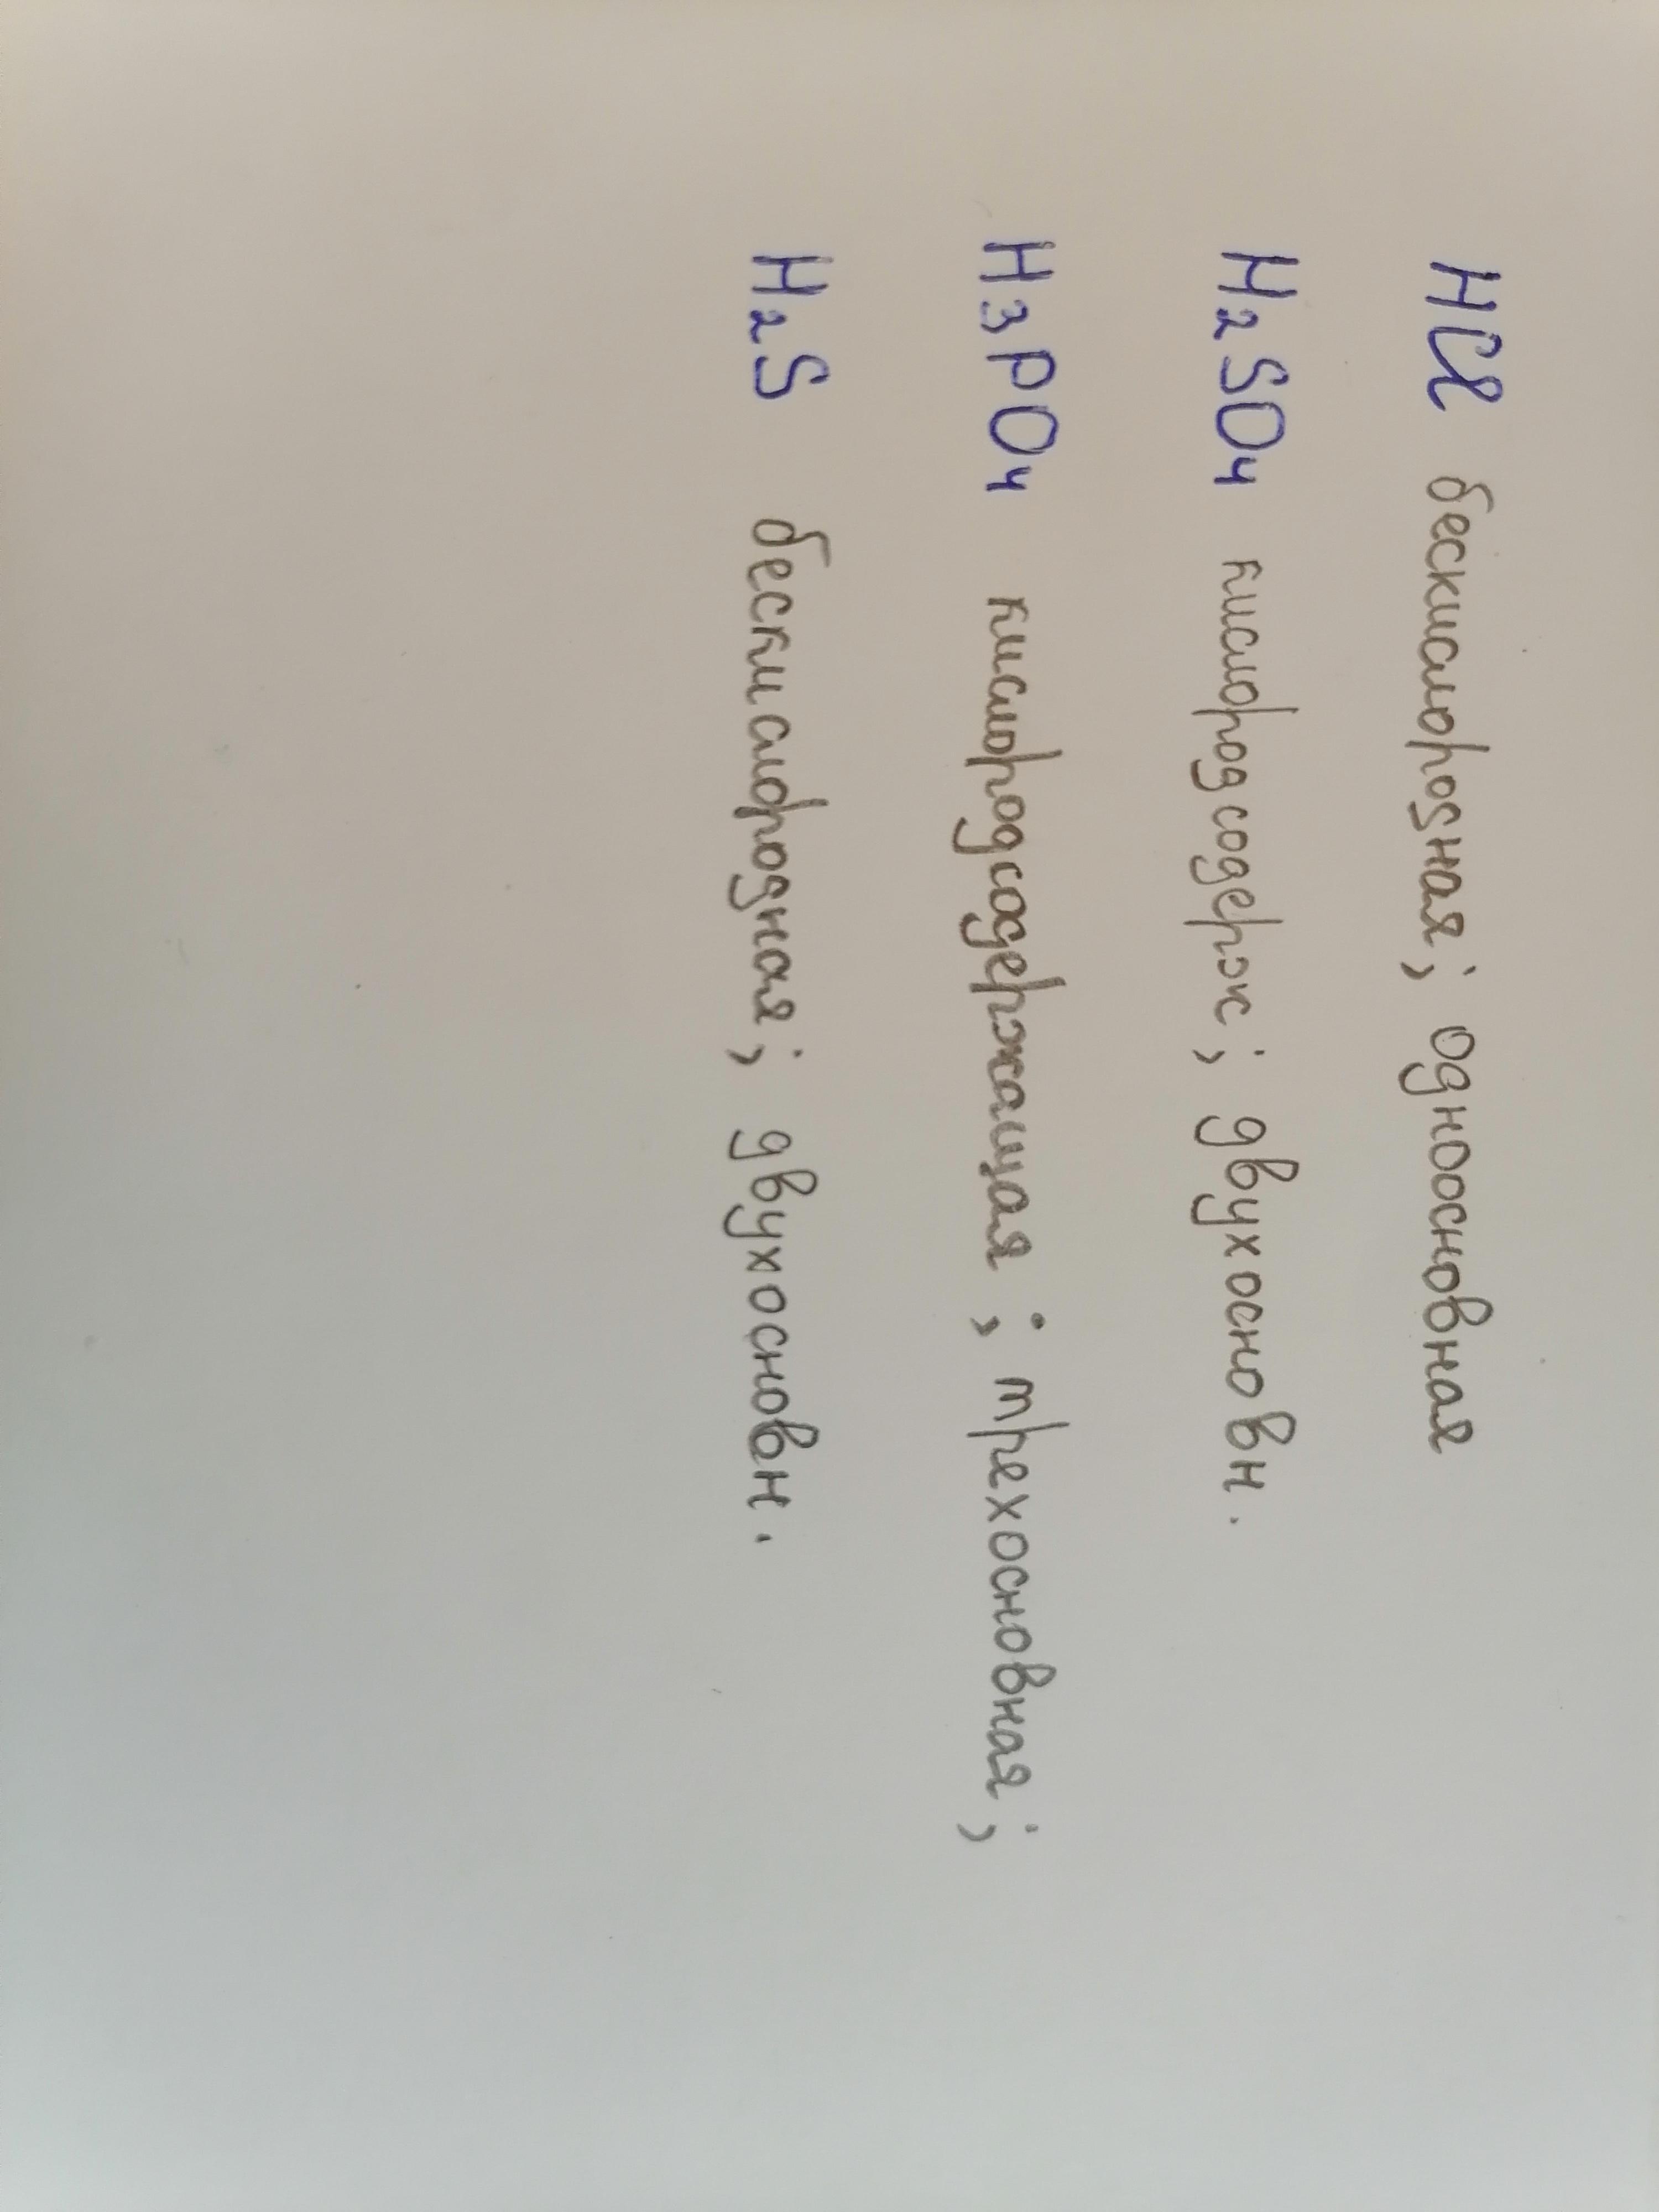 HCl бескислородная; одноосновная
H₂SO₄ кислородсодерж; двухосновн.
H₃PO₄ кислородсодержащая; трехосновная;
H₂S бескислородная; двухосновн.